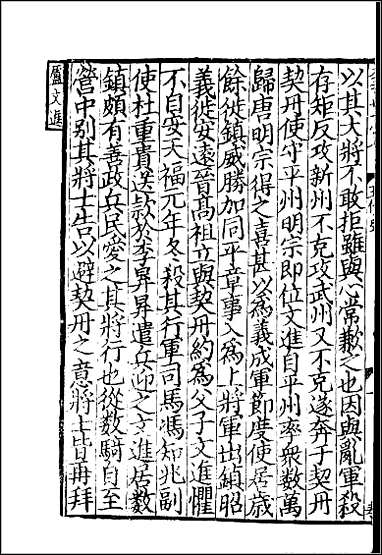 以其大將不敢拒雖與心常歉之也因與亂軍殺
存矩反攻新州不克攻武州又不克遂奔于契丹
契丹使守平州明宗即位文進自平州率衆數萬
歸唐明宗得之喜甚以爲義成軍節度使居歲
餘徙鎮威勝加同平章事入爲上將軍出鎮昭
義徙安遠晉髙祖立與契丹約爲父子文進懼
不自安天福元年冬殺其行軍司馬馮知兆副
使杜重貴送款於李昪昪遣兵迎之文進居數
鎮頗有善政兵民愛之其將行也從數騎自至
營中别其將士告以避契丹之意將士皆再拜
盧文進